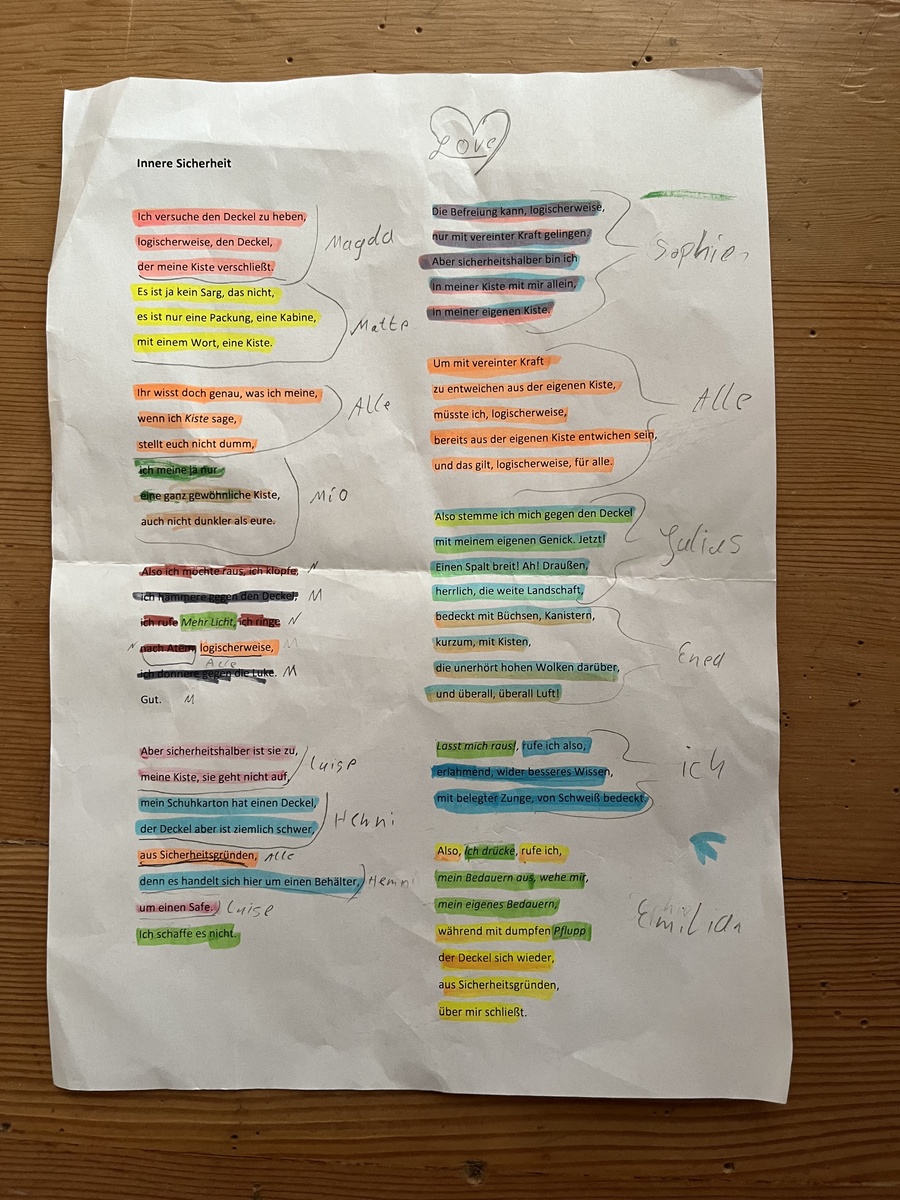 Love
Innere Sicherheit
Ich versuche den Deckel zu heben,
logischerweise, den Deckel,
der meine Kiste verschließt.
Magda
Es ist ja kein Sarg, das nicht,
es ist nur eine Packung, eine Kabine,
mit einem Wort, eine Kiste.
Matte
Ihr wisst doch genau, was ich meine,
wenn ich Kiste sage,
stellt euch nicht dumm,
Alle
ich meine ja nur
eine ganz gewöhnliche Kiste,
auch nicht dunkler als eure.
MiO
Also ich möchte raus, ich klopfe, N
ich hämmere gegen den Deckel, M
ich rufe Mehr Licht, ich ringe N
N nach Atem, logischerweise, M
Alle
ich donnere gegen die Luke. M
Gut. M
Aber sicherheitshalber ist sie zu,
meine Kiste, sie geht nicht auf,
Luise
mein Schuhkarton hat einen Deckel,
der Deckel aber ist ziemlich schwer,
Henni
aus Sicherheitsgründen, Alle
denn es handelt sich hier um einen Behälter, Henni
um einen Safe. Luise
Ich schaffe es nicht.
Die Befreiung kann, logischerweise,
nur mit vereinter Kraft gelingen.
Aber sicherheitshalber bin ich
In meiner Kiste mit mir allein,
In meiner eigenen Kiste.
Sophie
Um mit vereinter Kraft
zu entweichen aus der eigenen Kiste,
müsste ich, logischerweise,
bereits aus der eigenen Kiste entwichen sein,
und das gilt, logischerweise, für alle.
Alle
Also stemme ich mich gegen den Deckel
mit meinem eigenen Genick. Jetzt!
Einen Spalt breit! Ah! Draußen,
herrlich, die weite Landschaft,
Julius
bedeckt mit Büchsen, Kanistern,
kurzum, mit Kisten,
die unerhört hohen Wolken darüber,
und überall, überall Luft!
Enea
Lasst mich raus!, rufe ich also,
erlahmend, wider besseres Wissen,
mit belegter Zunge, von Schweiß bedeckt.
ich
Also, Ich drücke, rufe ich,
mein Bedauern aus, wehe mir,
mein eigenes Bedauern,
während mit dumpfen Pflupp
der Deckel sich wieder,
aus Sicherheitsgründen,
über mir schließt.
Emilia